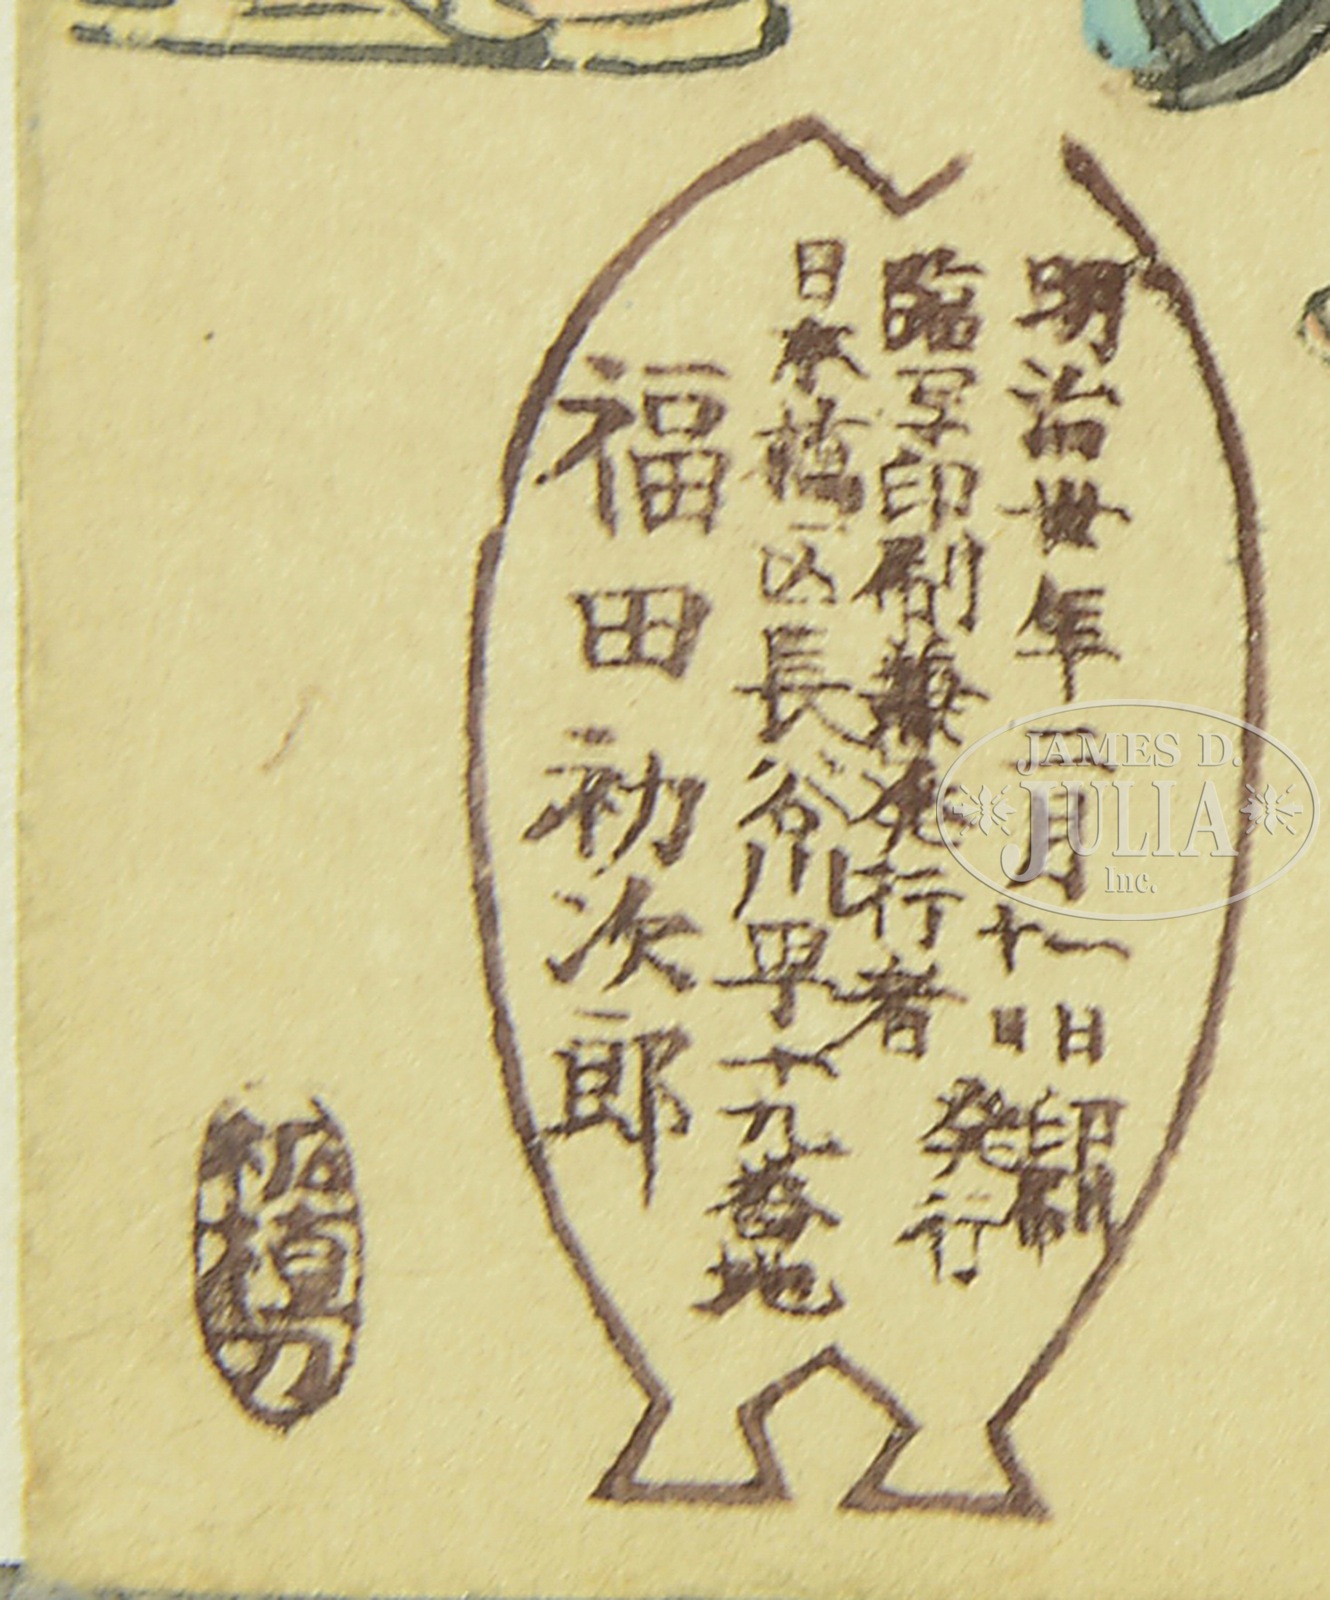 明治卅年二月
一日印刷
十日発行
臨写印刷兼発行者
日本橋区長谷川町十九番地
福田初次郎
植刀
JAMES D.
JULIA
Inc.